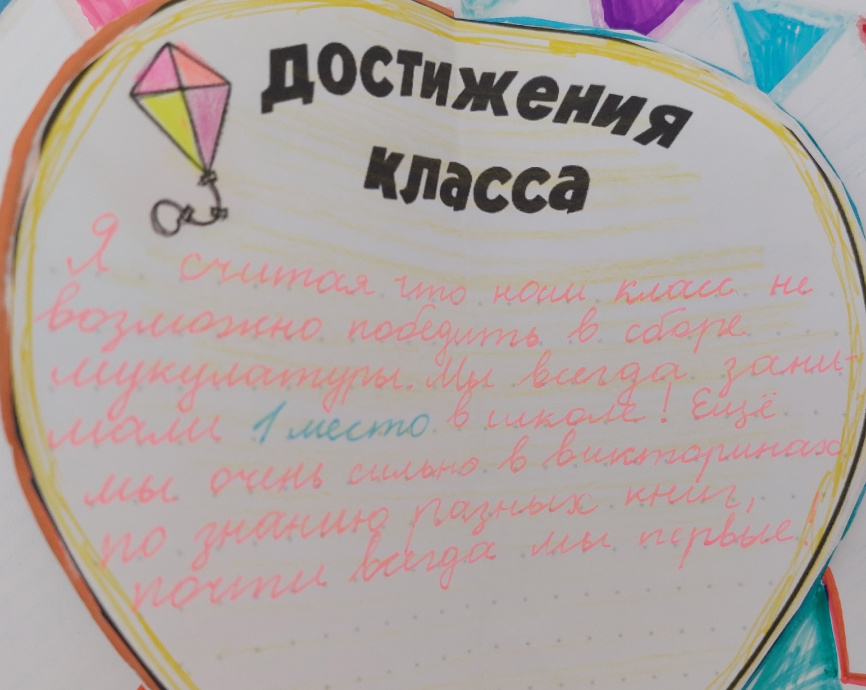 ДОСТИЖЕНИЯ
КЛАССА
Я считая что наш класс не
возможно победить в сборе
мукулатуры. Мы всегда зани-
мали 1 место в школе! Ещё
мы очень сильно в викторинах
по знанию разных книг,
почти всегда мы первые!